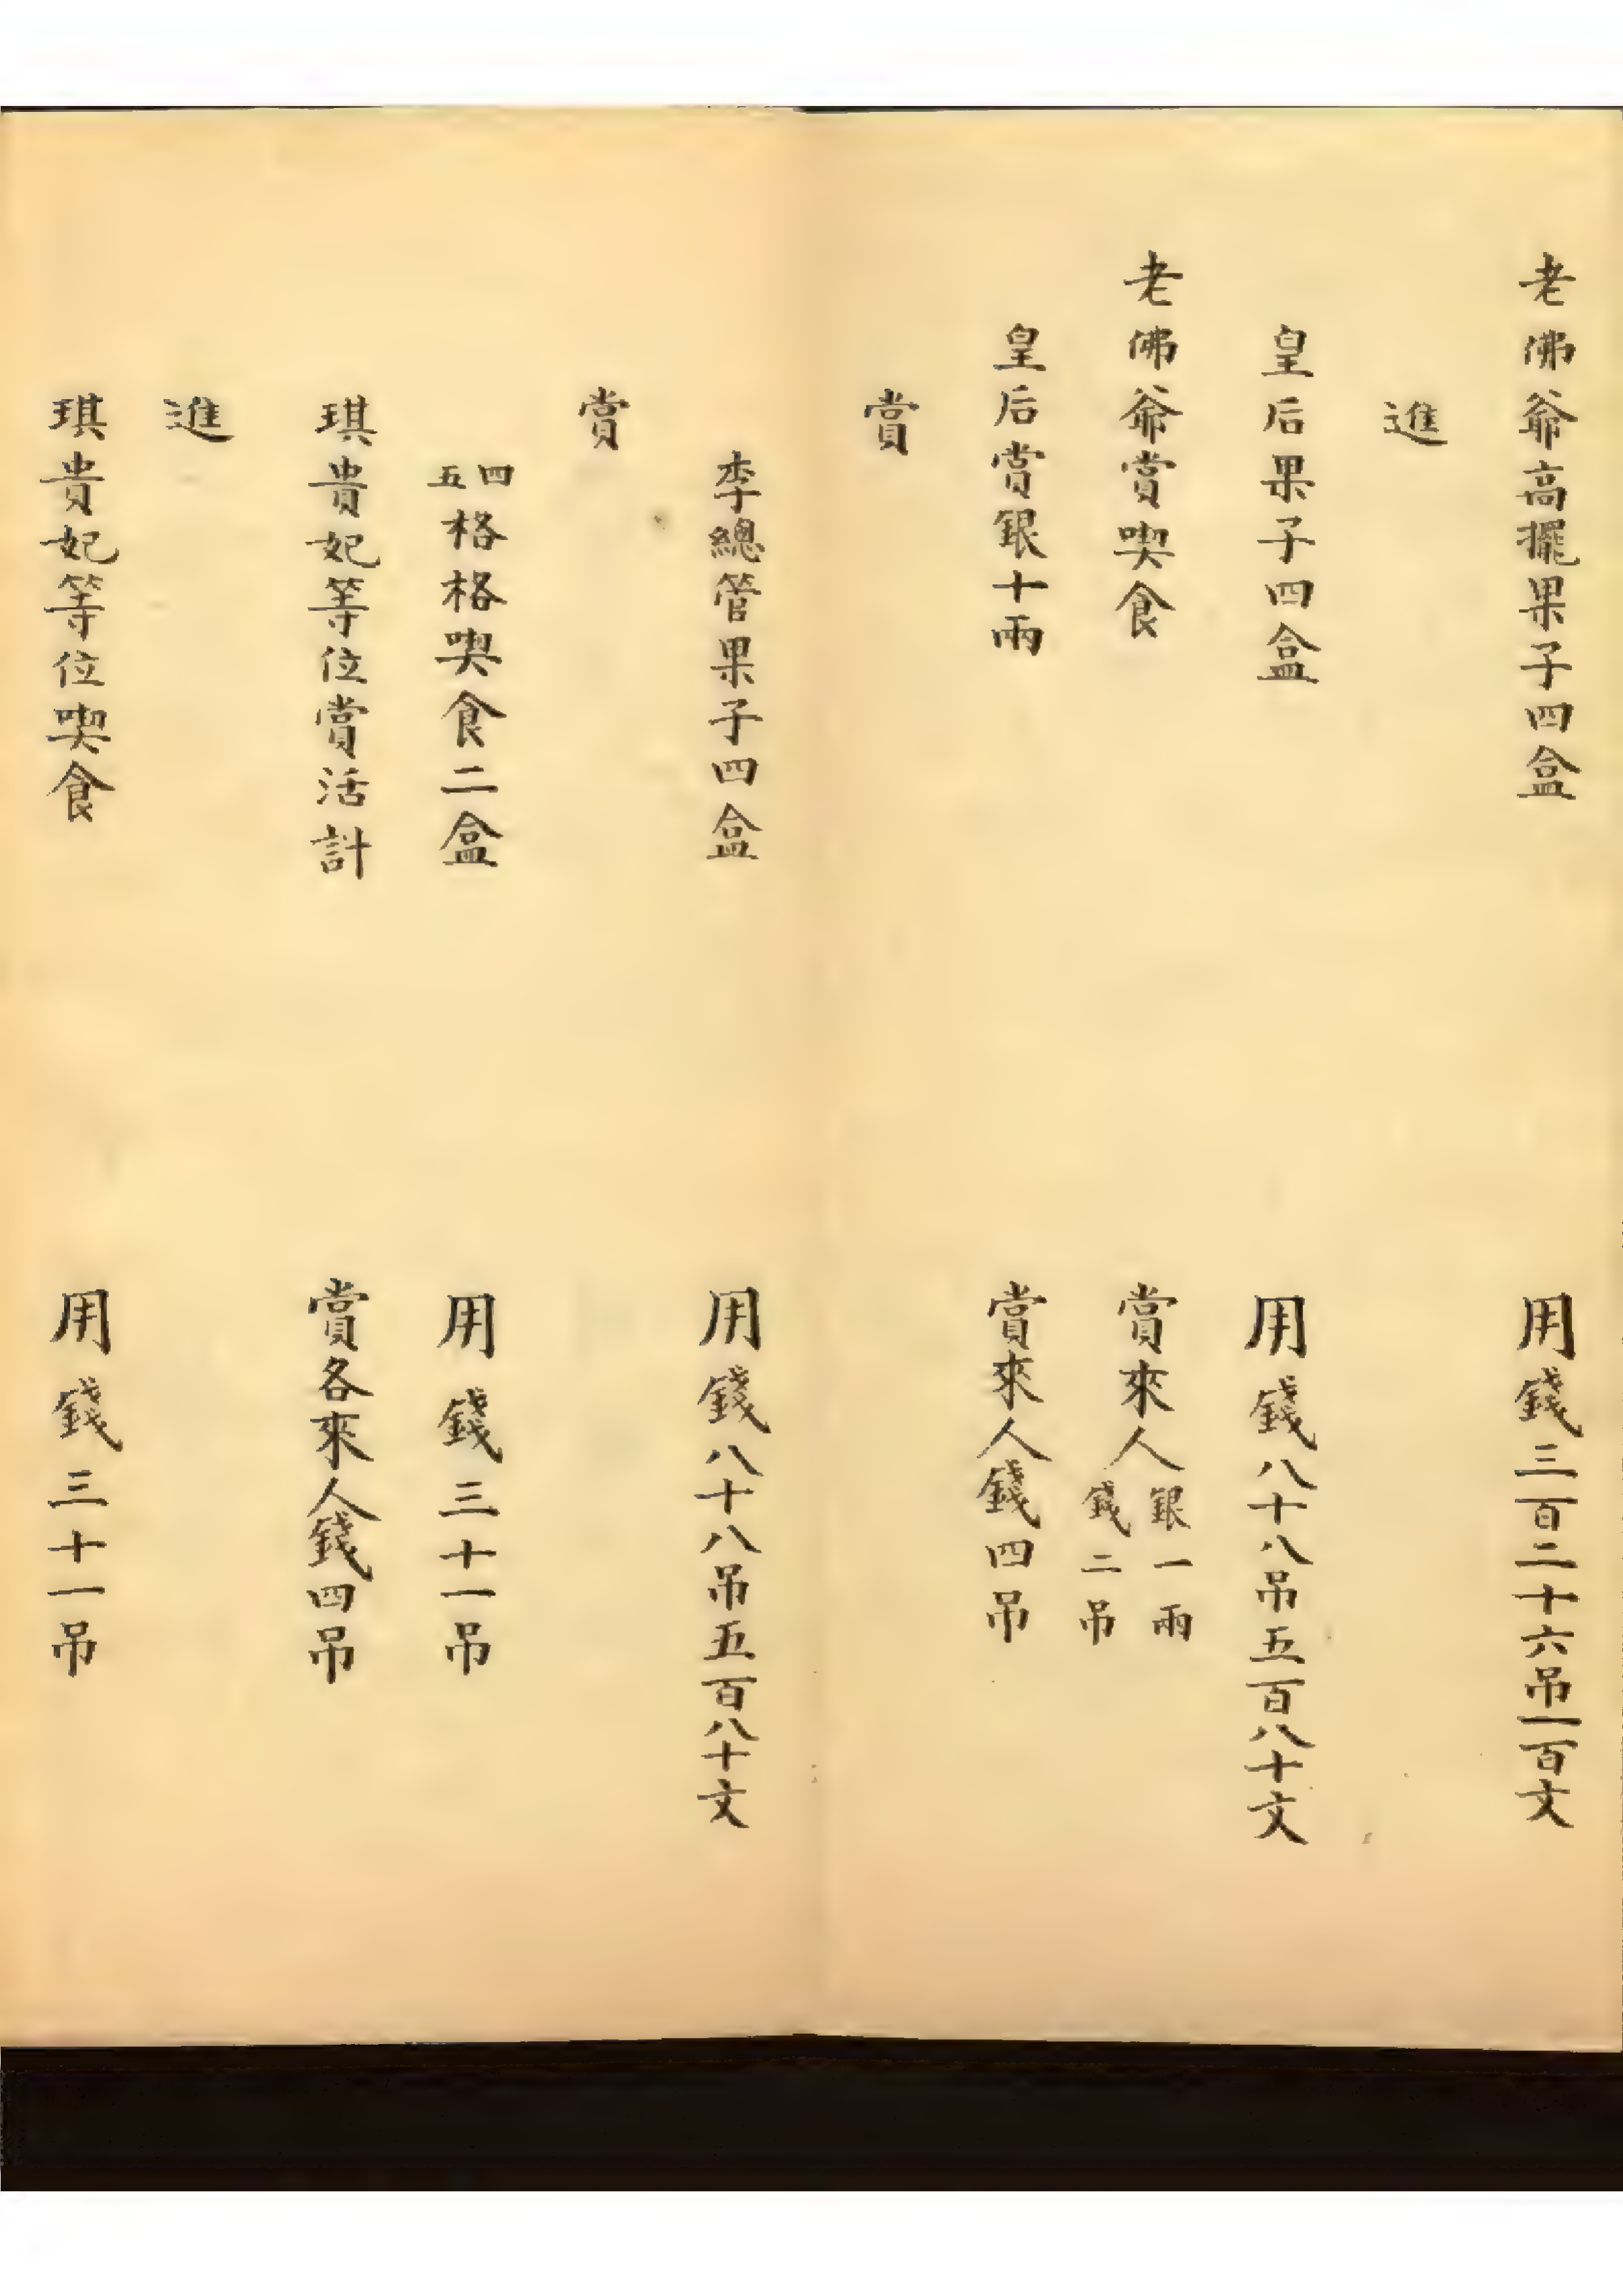 老佛爺高擺果子四盒 用錢三百二十六吊一百文
進
皇后果子四盒 用錢八十八吊五百八十文
老佛爺賞喫食 賞來人銀一兩錢二吊
皇后賞銀十兩 賞來人錢四吊
賞
李總管果子四盒 用錢八十八吊五百八十文
賞
四五格格喫食二盒 用錢三十一吊
琪貴妃等位賞活計 賞各來人錢四吊
進
琪貴妃等位喫食 用錢三十一吊